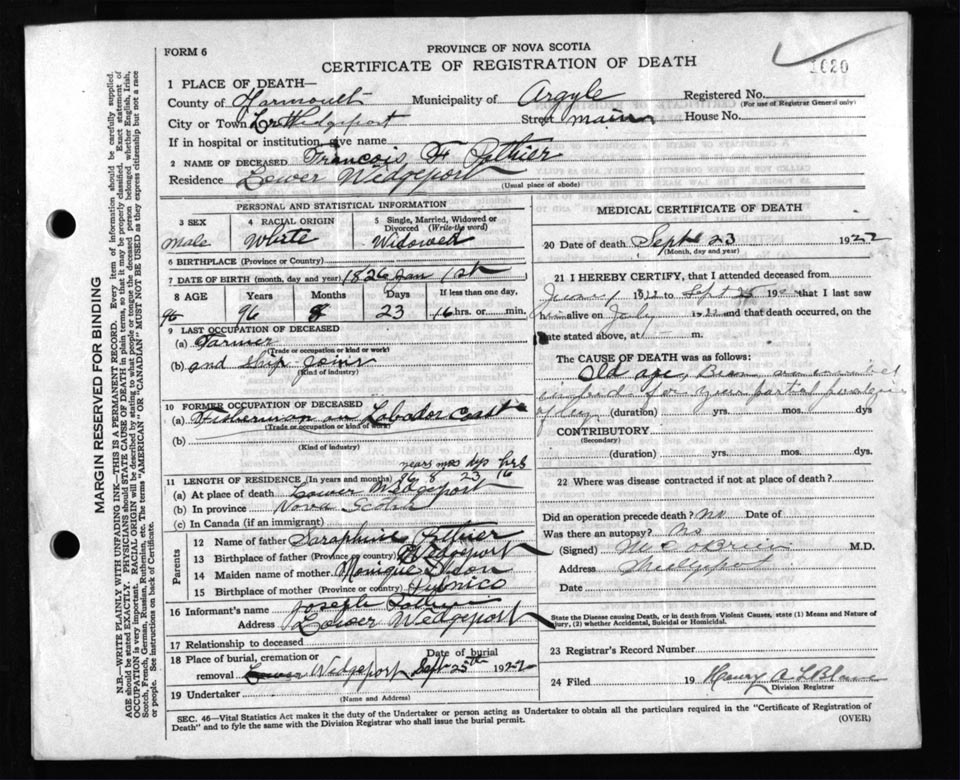 1020
FORM 6
PROVINCE OF NOVA SCOTIA
CERTIFICATE OF REGISTRATION OF DEATH
1 PLACE OF DEATH—
County of Yarmouth Municipality of Argyle Registered No.
(For use of Registrar General only)
City or Town Lr Wedgeport Street main House No.
If in hospital or institution, give name
2 NAME OF DECEASED Francois F Pothier
Residence Lower Wedgeport
(Usual place of abode)
PERSONAL AND STATISTICAL INFORMATION
3 SEX 4 RACIAL ORIGIN 5 Single, Married, Widowed or Divorced (Write the word)
male White Widowed
6 BIRTHPLACE (Province or Country)
7 DATE OF BIRTH (month, day and year) 1826 Jan 1st
8 AGE Years Months Days If less than one day,
96 96 8 23 16 hrs. or min.
9 LAST OCCUPATION OF DECEASED
(a) Farmer
(Trade or occupation or kind or work)
(b) and Ship Joiner
(Kind of industry)
10 FORMER OCCUPATION OF DECEASED
(a) Fisherman on Labador Coast
(Trade or occupation or kind of work)
(b)
(Kind of industry)
years mos dys hrs
11 LENGTH OF RESIDENCE (In years and months) 96 8 23 16
(a) At place of death Lower Wedgeport
(b) In province Nova Scotia
(c) In Canada (if an immigrant)
Parents
12 Name of father Saraphine Pothier
13 Birthplace of father (Province or country) Wedgeport
14 Maiden name of mother Monique
15 Birthplace of mother (Province or country) Pubnico
16 Informant's name Joseph
Address Lower Wedgeport
17 Relationship to deceased
18 Place of burial, cremation or removal Lower Wedgeport Date of burial Sept 25th 1922
19 Undertaker
(Name and Address)
MEDICAL CERTIFICATE OF DEATH
20 Date of death Sept 23 1922
(Month, day and year)
21 I HEREBY CERTIFY, that I attended deceased from
1922 to Sept 25 19 that I last saw
alive on July 1922 and that death occurred, on the
date stated above, at m.
The CAUSE OF DEATH was as follows:
Old age, Been an
in bed for partial
of leg (duration) yrs. mos. dys
CONTRIBUTORY
(Secondary)
(duration) yrs. mos. dys.
22 Where was disease contracted if not at place of death?
Did an operation precede death? No Date of
Was there an autopsy? No
(Signed) M.D.
Address Wedgeport
Date
State the Disease causing Death, or in death from Violent Causes, state (1) Means and Nature of Injury, (2) whether Accidental, Suicidal or Homicidal.
23 Registrar's Record Number
24 Filed 19 Henry A LeBlanc
Division Registrar
SEC. 46—Vital Statistics Act makes it the duty of the Undertaker or person acting as Undertaker to obtain all the particulars required in the "Certificate of Registration of
Death" and to fyle the same with the Division Registrar who shall issue the burial permit. (OVER)
MARGIN RESERVED FOR BINDING
N.B.—WRITE PLAINLY WITH UNFADING INK—THIS IS A PERMANENT RECORD. Every item of information should be carefully supplied.
AGE should be stated EXACTLY. PHYSICIANS should STATE CAUSE OF DEATH in plain terms, so that it may be properly classified. Exact statement of
OCCUPATION is very important. RACIAL ORIGIN will be described by stating to what people or tongue the deceased person belonged whether English, Irish,
Scotch, French, German, Russian, Ruthenian, etc. The terms "AMERICAN" OR "CANADIAN" MUST NOT BE USED as they express citizenship but not a race
or people. See instructions on back of Certificate.